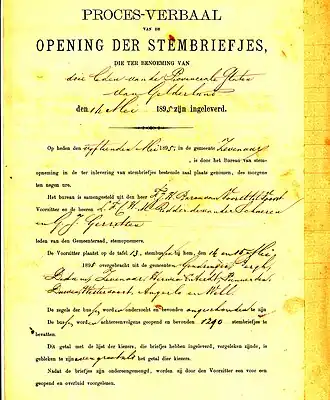 PROCES-VERBAAL
VAN DE
OPENING DER STEMBRIEFJES,
DIE TER BENOEMING VAN
drie Leden van de Provinciale Staten
van Gelderland
den 14 Mei 1895 zijn ingeleverd.
Op heden den vyftienden Mei 1895, in de gemeente Zevenaar
, is door het Bureau van stem-
opneming in de ter inlevering van stembriefjes bestemde zaal plaats genomen, des morgens
ten negen ure.
Het bureau is samengesteld uit den heer
Voorzitter en de heeren Ridder de van der Schueren
en G J Gerretsen
leden van den Gemeenteraad, stemopnemers.
De Voorzitter plaatst op de tafel 13, stembussen bij hem, den 14 en 15 Mei
1895 overgebracht uit de gemeenten Gendringen, Bergh,
Didam, Zevenaar, Herwen en Aerdt, Pannerden,
Duiven, Westervoort, Angerlo en Wehl.
De zegels der bussen worden onderzocht en bevonden ongeschonden te zijn
De bussen worden achtereenvolgens geopend en bevonden 1290 stembriefjes te
bevatten.
Dit getal met de lijst der kiezers, die briefjes hebben ingeleverd, vergeleken zijnde, is
gebleken te zijn even groot als het getal dier kiezers.
Nadat de briefjes zijn ondereengemengd, worden zij door den Voorzitter een voor een
geopend en overluid voorgelezen.